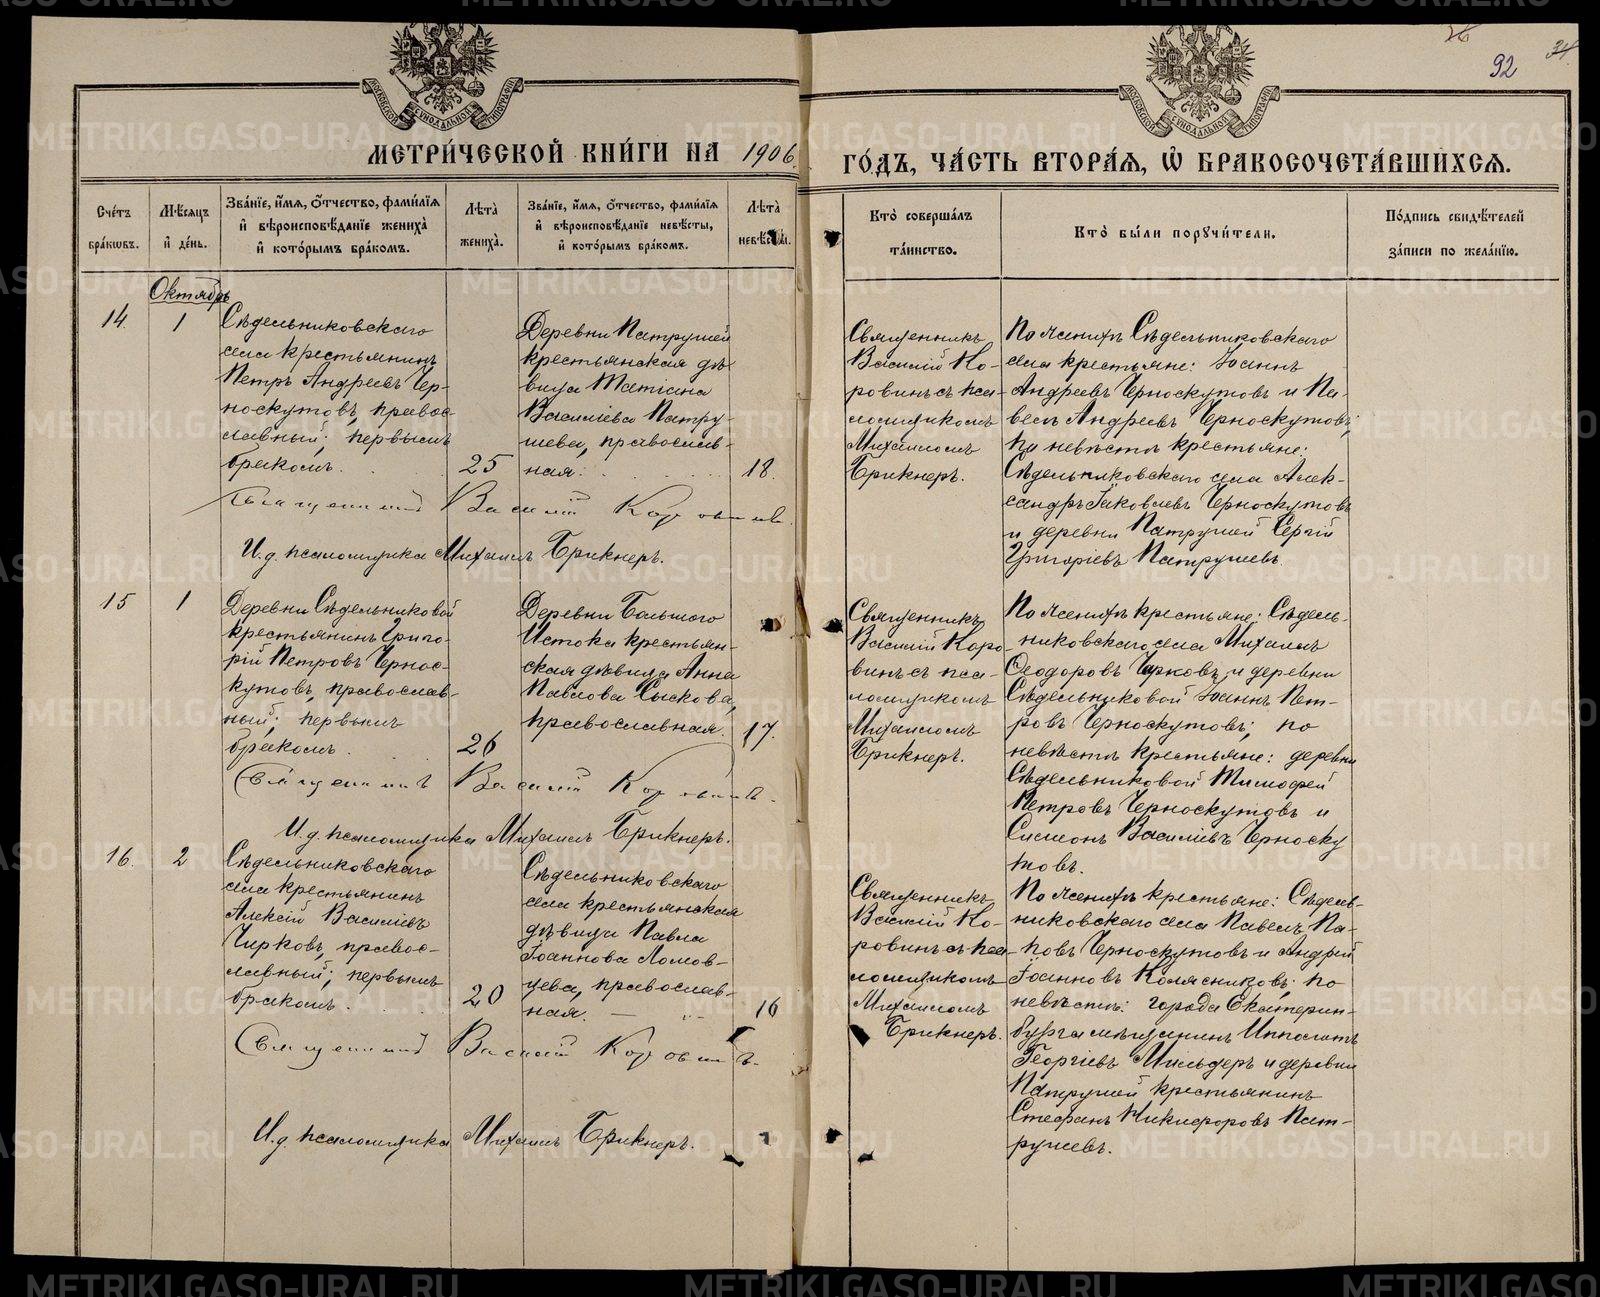 МЕТРИ́ЧЕСКОЙ КНИ́ГИ НА 1906
ГО́ДЪ, ЧА́СТЬ ВТОРА́Я, Ѡ҆ БРАКОСОЧЕТА́ВШИХСЯ.
92
Сче́тъ
бра́ковъ.
Мѣ́сяцъ
и҆ де́нь.
Зва́нїе, и҆́мя, ѻ҆́тчество, фами́лїя
и҆ вѣроисповѣ́данїе жениха̀
и҆ кото́рымъ бра́комъ.
Лѣ́та̀
жениха̀.
Зва́нїе, и҆́мя, ѻ҆́тчество, фами́лїя
и҆ вѣроисповѣ́данїе невѣ́сты,
и҆ кото́рымъ бра́комъ.
Лѣ́та̀
невѣ́сты.
Кто̀ соверша́лъ
та́инство.
Кто̀ бы́ли поручи́тели.
По́дпись свидѣ́телей
за́писи по жела́нїю.
Октябрь
14.
1
Сѣдельниковскаго
села крестьянинъ
Петръ Андреевъ Чер-
носкутовъ, правос-
лавный; первымъ
бракомъ.
25
Деревни Патрушей
крестьянская дѣ-
вица Татіана
Василіева Патру-
шева, православ-
ная.
18.
Священникъ
Василій Ко-
ровинъ съ пса-
ломщикомъ
Михаиломъ
Брикнеръ.
По женихѣ Сѣдельниковскаго
села крестьяне: Іоаннъ
Андреевъ Черноскутовъ и Па-
велъ Андреевъ Черноскутовъ;
по невѣстѣ крестьяне:
Сѣдельниковскаго села Алек-
сандръ Іаковлевъ Черноскутовъ
и деревни Патрушей Сергій
Григоріевъ Патрушевъ.
Священникъ Василій Коровинъ.
И.д. псаломщика Михаилъ Брикнеръ.
15
1
Деревни Сѣдельниковой
крестьянинъ Григо-
рій Петровъ Чернос-
кутовъ, православ-
ный; первымъ
бракомъ.
26
Деревни Большого
Истока крестьян-
ская дѣвица Анна
Павлова Сыскова,
православная.
17.
Священникъ
Василій Коро-
винъ съ пса-
ломщикомъ
Михаиломъ
Брикнеръ.
По женихѣ крестьяне: Сѣдель-
никовскаго села Михаилъ
Ѳеодоровъ Чирковъ и деревни
Сѣдельниковой Іоаннъ Пет-
ровъ Черноскутовъ; по
невѣстѣ крестьяне: деревни
Сѣдельниковой Тимофей
Петровъ Черноскутовъ и
Симеонъ Василіевъ Черноску
товъ.
Священникъ Василій Коровинъ.
И.д. псаломщика Михаилъ Брикнеръ.
16.
2
Сѣдельниковскаго
села крестьянинъ
Алексій Василіевъ
Чирковъ, правос-
лавный; первымъ
бракомъ.
20
Сѣдельниковскаго
села крестьянская
дѣвица Павла
Іоаннова Ломов-
цева, православ-
ная.
16
Священникъ
Василій Ко-
ровинъ съ пса-
ломщикомъ
Михаиломъ
Брикнеръ.
По женихѣ крестьяне: Сѣдель-
никовскаго села Павелъ Па-
вовъ Черноскутовъ и Андрей
Іоанновъ Колясниковъ; по
невѣстѣ: города Екатерин-
бурга мѣщанинъ Ипполитъ
Георгіевъ Мильдеръ и деревни
Патрушей крестьянинъ
Стефанъ Никифоровъ Пат-
рушевъ.
Священникъ Василій Коровинъ.
И.д. псаломщика Михаилъ Брикнеръ.
METRIKI.GASO-URAL.RU